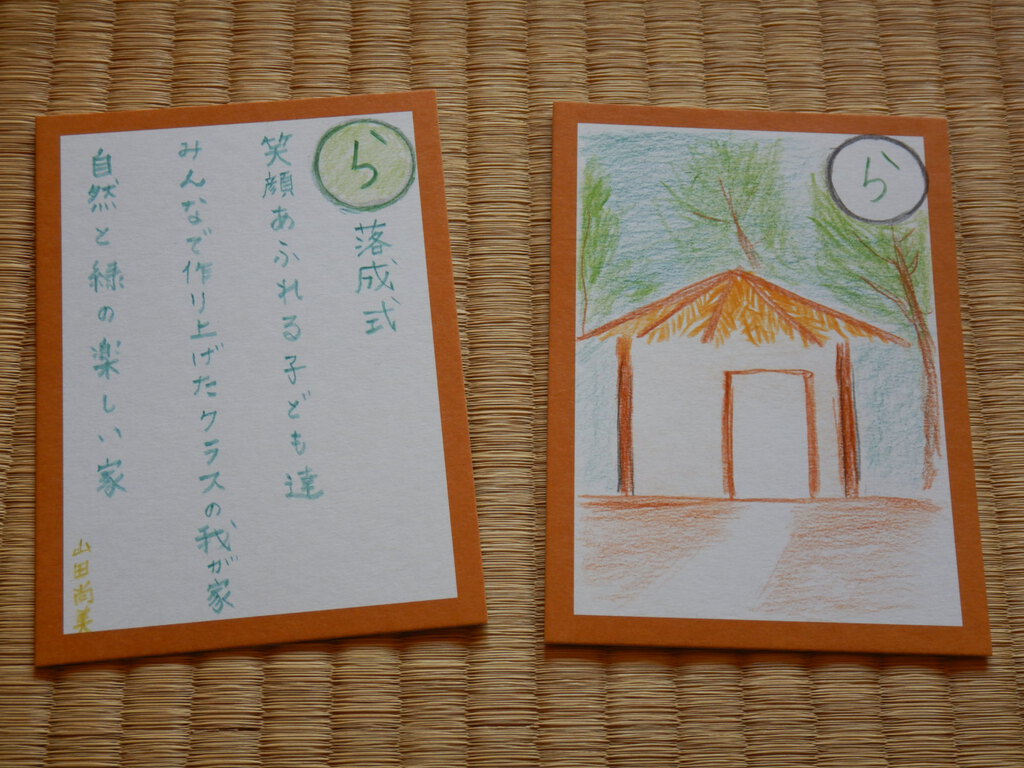 ら
落成式
笑顔あふれる子ども達
みんなで作り上げたクラスの我が家
自然と緑の楽しい家
山田尚美
ら